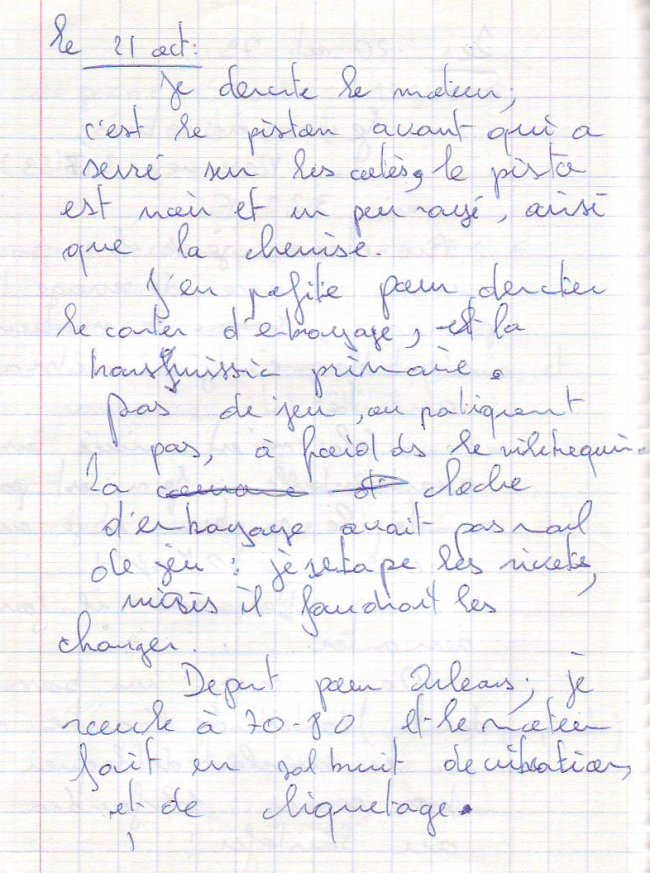 le 21 oct:
Je demonte le moteur,
c'est le piston avant qui a
serré sur les cotés, le pisto
est noir et un peu rayé, ainsi
que la chemise.
J'en profite pour demonter
le carter d'embrayage, et la
transmission primaire.
Pas de jeu, ou pratiquement
pas, à froid ds le vilebrequin.
La cloche
d'embrayage avait pas mal
de jeu : je retape les rivets,
mais il faudrait les
changer.
Depart pour Orleans; je
roule à 70-80 et le moteur
fait un sal bruit de vibration,
et de cliquetage.